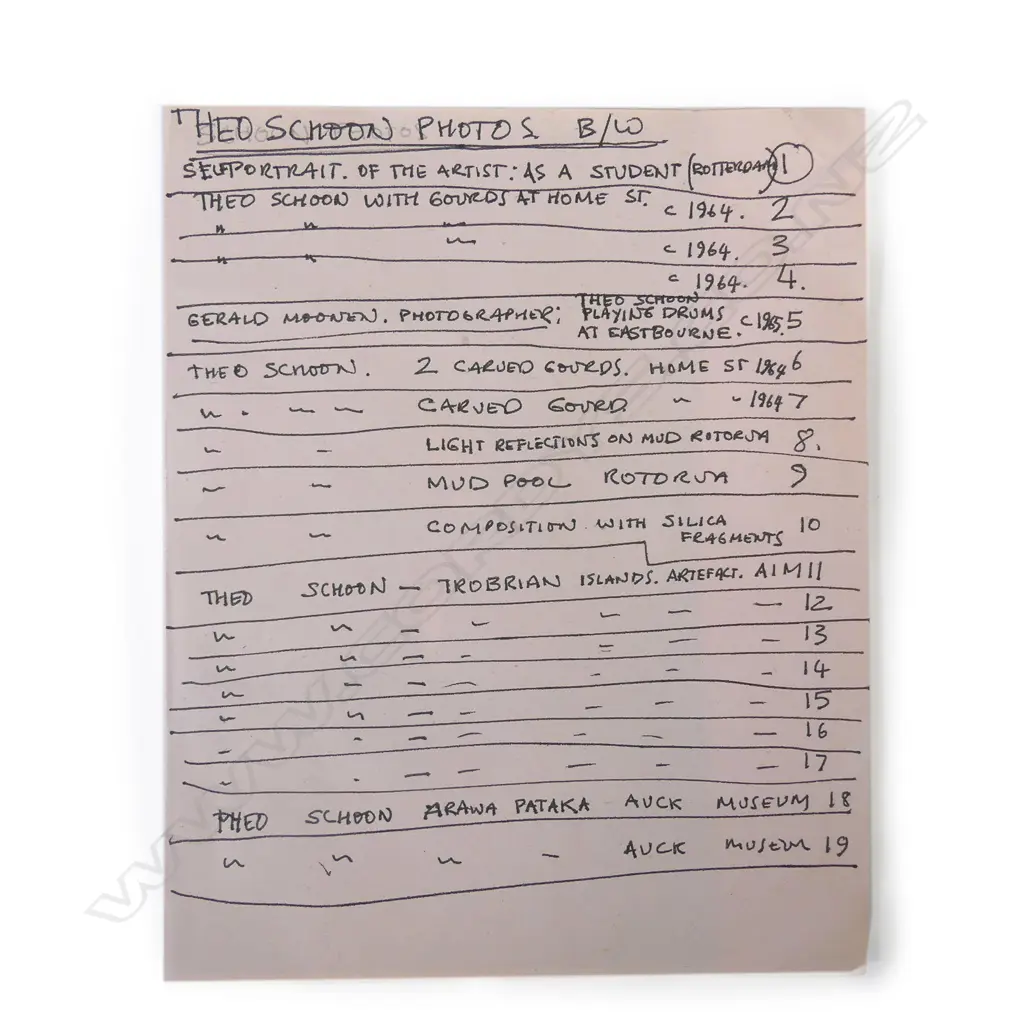 THEO SCHOON PHOTOS B/W
SELFPORTRAIT. OF THE ARTIST: AS A STUDENT (ROTTERDAM) 1
THEO SCHOON WITH GOURDS AT HOME ST. c 1964. 2
" " " c 1964. 3
" " c 1964. 4.
GERALD MOONEN. PHOTOGRAPHER; THEO SCHOON
PLAYING DRUMS
AT EASTBOURNE. c 1965. 5
THEO SCHOON. 2 CARVED GOURDS. HOME ST 1964 6
" . " " CARVED GOURD " " 1964 7
" " LIGHT REFLECTIONS ON MUD ROTORUA 8.
" " MUD POOL ROTORUA 9
" " COMPOSITION WITH SILICA
FRAGMENTS 10
THEO SCHOON – TROBRIAN ISLANDS. ARTEFACT. AIM 11
" " — - - — — 12
" " — - = — - 13
" – — — - - – 14
" " — - – – — 15
- - – - - - — 16
" . — – — - — 17
THEO SCHOON ARAWA PATAKA AUCK MUSEUM 18
" " " - AUCK MUSEUM 19